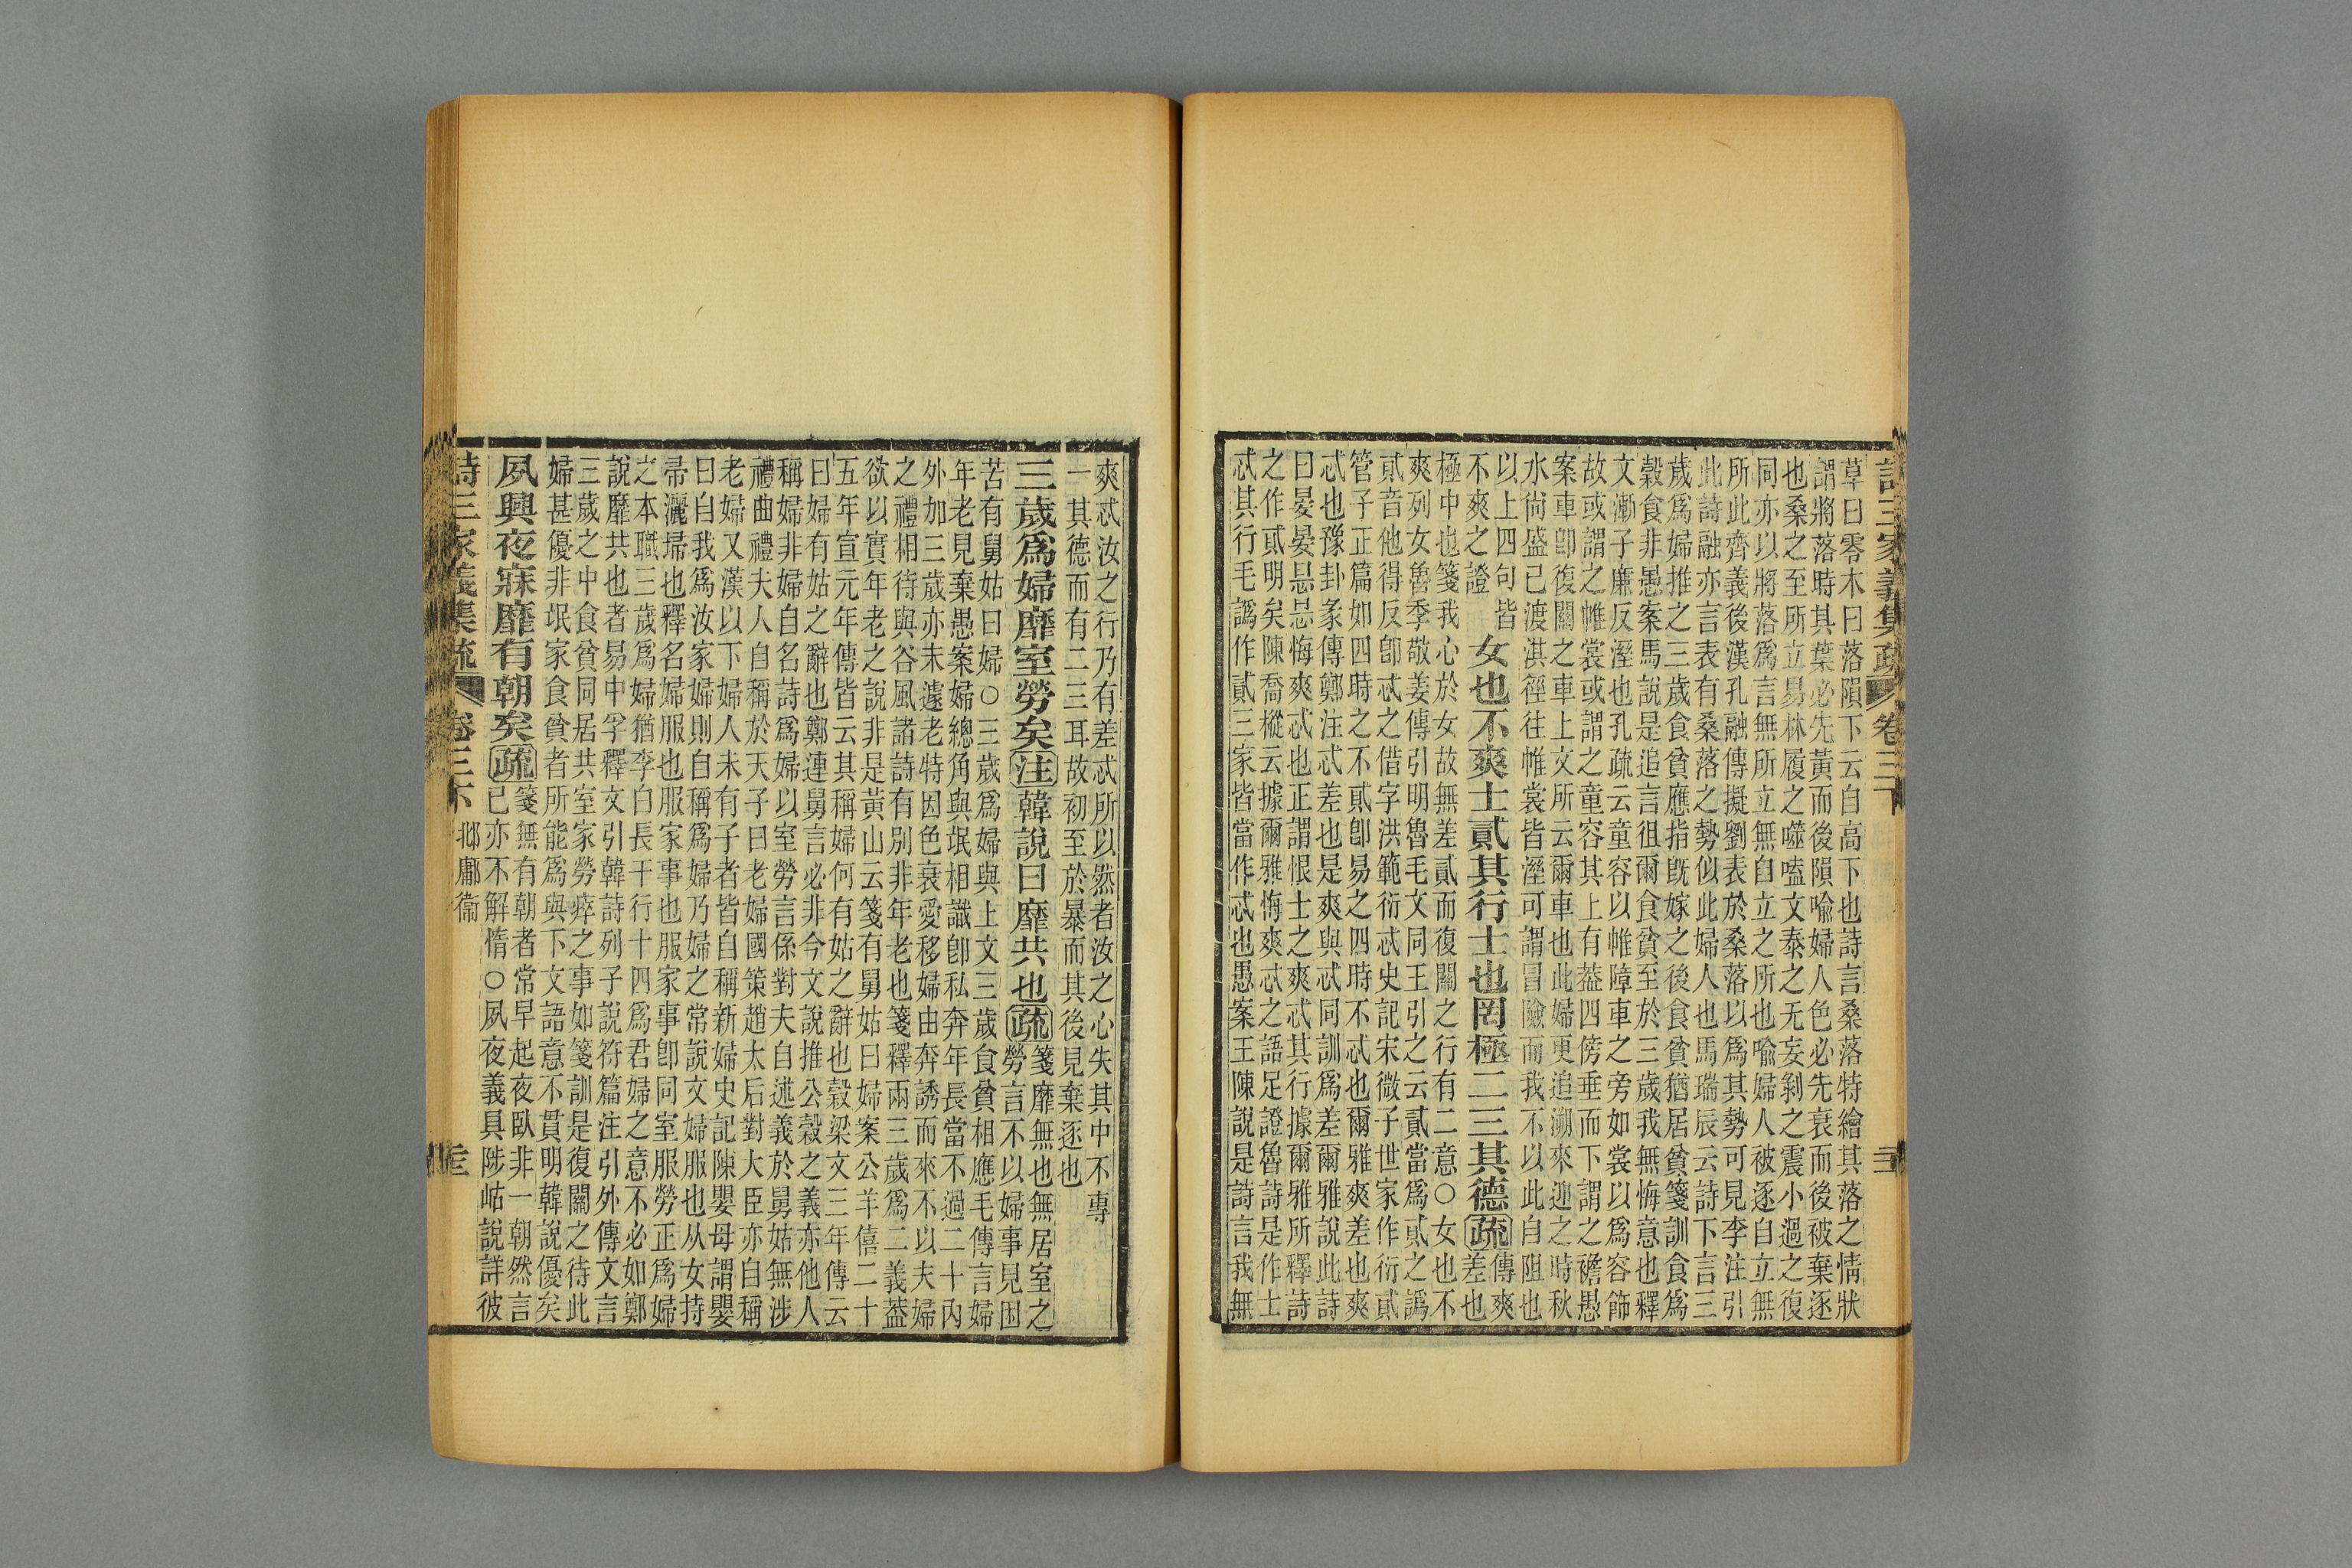 詩三家義集疏 卷三下
草曰零木曰落隕下云自高下也詩言桑落特繪其落之情狀
謂將落時其葉必先黃而後隕喻婦人色必先衰而後被棄逐
也桑之至所立易林履之噬嗑文泰之无妄剝之震小過之復
同亦以將落爲言無所立無自立之所也喻婦人被逐自立無
所此齊義後漢孔融傳擬劉表於桑落以爲其勢可見李注引
此詩融亦言表有桑落之勢似此婦人也馬瑞辰云詩下言三
歲爲婦推之三歲食貧應指既嫁之後食貧猶居貧箋訓食爲
穀食非愚案馬說是追言徂爾食貧至於三歲我無悔意也釋
文漸子廉反溼也孔疏云童容以帷障車之旁如裳以爲容飾
故或謂之帷裳或謂之童容其上有葢四傍垂而下謂之襜愚
案車卽復關之車上文所云爾車也此婦更追溯來迎之時秋
水尙盛已渡淇徑往帷裳皆溼可謂冒險而我不以此自阻也
以上四句皆
不爽之證
女也不爽士貳其行士也罔極二三其德疏
傳爽
差也
極中也箋我心於女故無差貳而復關之行有二意○女也不
爽列女魯季敬姜傳引明魯毛文同王引之云貳當爲貣之譌
貣音他得反卽忒之借字洪範衍忒史記宋微子世家作衍貣
管子正篇如四時之不貣卽易之四時不忒也爾雅爽差也爽
忒也豫卦彖傳鄭注忒差也是爽與忒同訓爲差爾雅說此詩
曰晏晏旦旦悔爽忒也正謂恨士之爽忒其行據爾雅所釋詩
之作貣明矣陳喬樅云據爾雅悔爽忒之語足證魯詩是作士
忒其行毛譌作貳三家皆當作忒也愚案王陳說是詩言我無
爽忒汝之行乃有差忒所以然者汝之心失其中不專
一其德而有二三耳故初至於暴而其後見棄逐也
三歲爲婦靡室勞矣注韓說曰靡共也疏
箋靡無也無居室之
勞言不以婦事見困
苦有舅姑曰婦○三歲爲婦與上文三歲食貧相應毛傳言婦
年老見棄愚案婦總角與氓相識卽私奔年長當不過二十內
外加三歲亦未遽老特因色衰愛移婦由奔誘而來不以夫婦
之禮相待與谷風諸詩有別非年老也箋釋兩三歲爲二義葢
欲以實年老之說非是黃山云箋有舅姑曰婦案公羊僖二十
五年宣元年傳皆云其稱婦何有姑之辭也穀梁文三年傳云
曰婦有姑之辭也鄭連舅言必非今文說推公穀之義亦他人
稱婦非婦自名詩爲婦以室勞言係對夫自述義於舅姑無涉
禮曲禮夫人自稱於天子曰老婦國策趙太后對大臣亦自稱
老婦又漢以下婦人未有子者皆自稱新婦史記陳嬰母謂嬰
曰自我爲汝家婦則自稱爲婦乃婦之常說文婦服也从女持
帚灑埽也釋名婦服也服家事也服家事卽同室服勞正爲婦
之本職三歲爲婦猶李白長干行十四爲君婦之意不必如鄭
說靡共也者易中孚釋文引韓詩列子說符篇注引外傳文言
三歲之中食貧同居共室家勞瘁之事如箋訓是復關之待此
婦甚優非氓家食貧者所能爲與下文語意不貫明韓說優矣
夙興夜寐靡有朝矣疏
箋無有朝者常早起夜臥非一朝然言
已亦不解惰○夙夜義具陟岵說詳彼
詩三家義集疏 卷三下 邶鄘衞